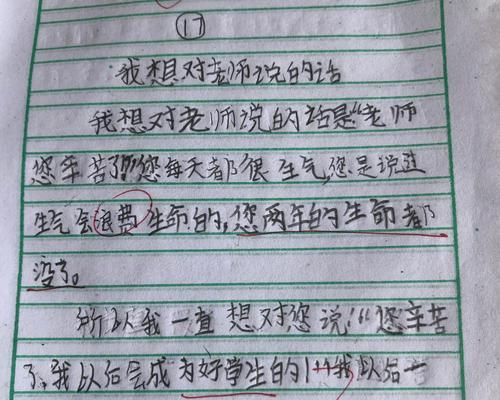 17
我想对老师说的话
我想对老师说的话是“老师
您辛苦了!”您每天都很生气,您是说过
生气会浪费生命的,您两年的生命都
没了。
所以我一直想对您说“您辛苦
了,我以后会成为好学生的!我以后一